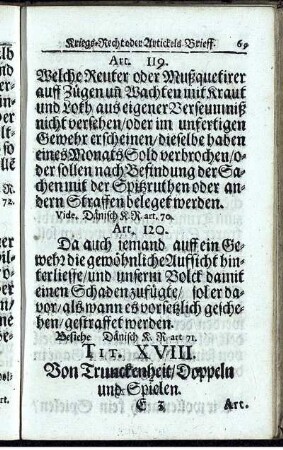 Kriegs-Recht oder Artickels-Brieff. 69
Art. 119.
Welche Reuter oder Mußquetirer
auff Zügen uñ Wachten mit Kraut
und Loth aus eigener Verseumniß
nicht versehen/oder im unfertigen
Gewehr erscheinen/dieselbe haben
eines Monats Sold verbrochen/o-
der sollen nach Befindung der Sa-
chen mit der Spitzruthen oder an-
dern Straffen beleget werden.
Vide. Dänisch K. R. art. 70.
Art. 120.
Da auch jemand auff ein Ge-
wehr die gewöhnliche Auffsicht hin-
terliesse/und unserm Volck damit
einen Schaden zufügte/ sol er da-
vor/als wann es vorsetzlich gesche-
hen/gestraffet werden.
Besiehe Dänisch K. R. art 71.
TIT. XVIII.
Von Trunckenheit/Doppeln
und Spielen.
E 3 Art.